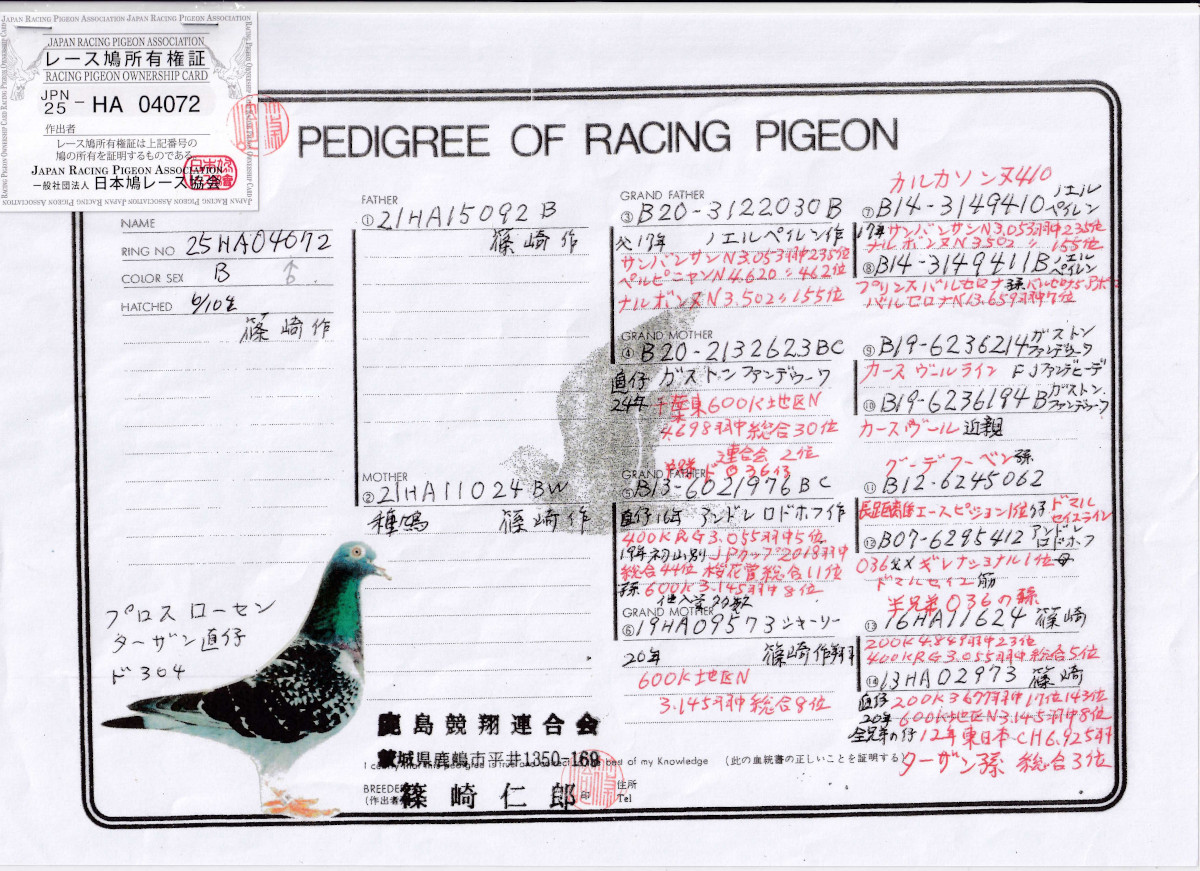 JAPAN RACING PIGEON ASSOCIATION JAPAN RACING PIGEON ASSOCIATION
JAPAN RACING PIGEON ASSOCIATION
レース鳩所有権証
RACING PIGEON OWNERSHIP CARD
JPN
25 - HA 04072
作出者
レース鳩所有権証は上記番号の
鳩の所有を証明するものである
JAPAN RACING PIGEON ASSOCIATION
一般社団法人 日本鳩レース協会
PEDIGREE OF RACING PIGEON
NAME
RING NO 25HA04072
COLOR SEX B ♂
HATCHED 6/10生
篠崎作
FATHER
① 21HA15092 B
篠崎作
MOTHER
② 21HA11024 BW
種鳩 篠崎作
GRAND FATHER
③ B20-3122030 B
父17年 ノエルペイレン作
サンバンサンN3.053羽中235位
ペルピニャンN4.620〃462位
ナルボンヌN3.502〃155位
GRAND MOTHER
④ B20-2132623 BC
直仔 ガストンファンデウーワ
24年 千葉東600K地区N
4.698羽中総合30位
連合会 2位
GRAND FATHER ド036仔
⑤ B13-6021976 BC
直仔16年 アンドレロドホフ作
400KRG3.055羽中5位
19年 初山別 JPカップ2018羽中
総合44位 桜花賞総合11位
孫600K3.145羽中8位
他入賞多数
GRAND MOTHER
⑥ 19HA09573 シャーリー
20年 篠崎作翔
600K地区N
3.145羽中総合8位
カルカソンヌ410
⑦ B14-3149410 ノエルペイレン
17年サンバンサンN3.053羽中235位
ナルボンヌN3.502〃155位
⑧ B14-3149411 B ノエルペイレン
プリンスバルセロナ孫
バルセロナN13.659羽中7位
⑨ B19-6236214 ガストンファンデウーワ
カースヴールライン FJファンデヒーデ
⑩ B19-6236194 B ガストンファンデウーワ
カースヴール近親
グーデフーベン孫
⑪ B12-6245062
長距離エースピジョン1位仔 ドマルセイユライン
⑫ B07-6295412 アンドレロドホフ
036父×ギレナショナル1位母
ドマルセイユ筋
半兄弟036の孫
⑬ 16HA11624 篠崎
200K4.849羽中23位
400KRG3.055羽中総合5位
⑭ 13HA02973 篠崎
直仔200K3677羽中17位143位
20年600K地区N3.145羽中8位
全兄弟の仔12年東日本CH6.925羽
ターザン孫 総合3位
プロスローセン
ターザン直仔
ド304
鹿島競翔連合会
茨城県鹿嶋市平井1350-169
I certify that this pedigree is true and best of my Knowledge (此の血統書の正しいことを証明する)
BREEDER
(作出者) 篠崎仁郎 印
住所
Tel